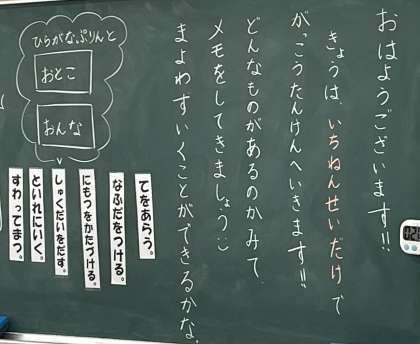 おはようございます!!
きょうは、いちねんせいだけで
がっこうたんけんへいきます!!
どんなものがあるのかみて
メモをしてきましょう
まよわずいくことができるかな。
ひらがなぷりんと
おとこ
おんな
てをあらう。
なふだをつける。
にもつをかたづける。
しゅくだいをだす。
といれにいく。
すわってまつ。